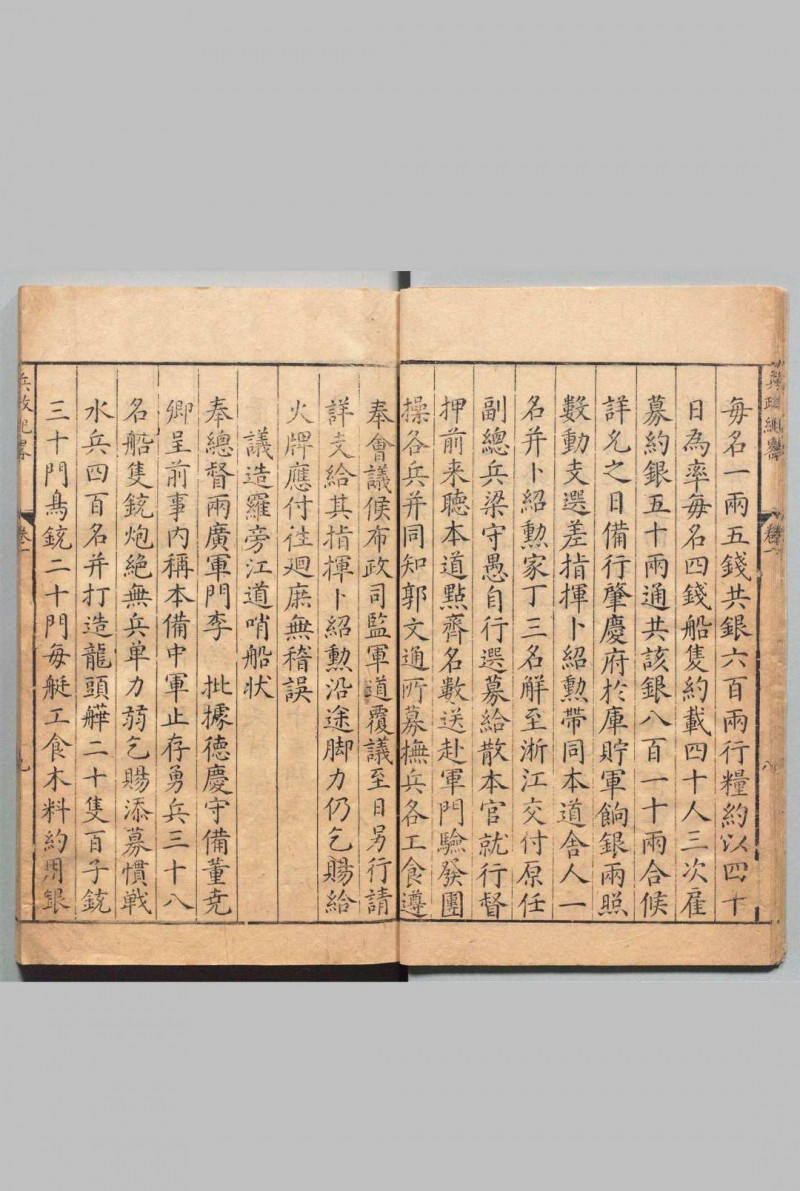 兵政紀畧
卷一
八
每名一兩五錢共銀六百兩行糧約以四十
日為率每名四錢船隻約載四十人三次雇
募約銀五十兩通共該銀八百一十兩合候
詳允之日備行肇慶府於庫貯軍餉銀兩照
數動支選差指揮卜紹勲帶同本道舍人一
名并卜紹勲家丁三名解至浙江交付原任
副總兵梁守愚自行選募給散本官就行督
押前来聽本道點齊名數送赴軍門驗發團
操各兵并同知郭文通所募撫兵各工食遵
奉會議候布政司監軍道覆議至日另行請
詳支給其指揮卜紹勲沿途脚力仍乞賜給
火牌應付往廻庶無稽誤
議造羅旁江道哨船狀
奉總督兩廣軍門李　批據德慶守備董尭
卿呈前事内稱本備中軍止存勇兵三十八
名船隻銃炮絶無兵单力弱乞賜添募慣戰
水兵四百名并打造龍頭艍二十隻百子銃
三十門鳥銃二十門每艇工食木料約用銀
兵政紀畧
卷一
九